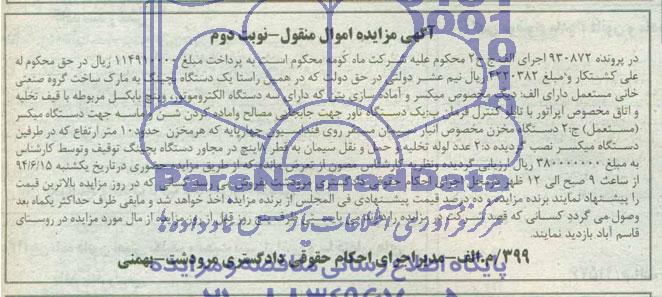 آگهی مزایده اموال منقول-نوبت دوم
در پرونده ۹۳۰۸۷۲ اجرای الف ح ۲ محکوم علیه شرکت ماه کومه محکوم است به پرداخت مبلغ ریال در حق محکوم له
علی کشتکار و مبلغ ریال نیم عشر دولتی در حق دولت که در همین راستا یک دستگاه بچینگ به مارک ساخت گروه صنعتی
خانی مستعمل دارای الف: دیگ مخصوص میکسر و آماده سازی بتن که دارای سه دستگاه الکتروموتور وینچ باکسل مربوطه با قیف تخلیه
و اتاق مخصوص اپراتور با تابلو کنترل فرمان ب: یک دستگاه جهت جابجایی مصالح و آماده کردن شن و ماسه جهت دستگاه میکسر
(مستعمل) ج: ۲ دستگاه مخزن مخصوص انبار سیمان مستقر روی فنداسیون چهارپایه که هر مخزن حدود ۱۰ متر ارتفاع که در طرفین
دستگاه میکسر نصب گردیده د: ۲ عدد لوله تخلیه و حمل و نقل سیمان به قطر ۸ اینچ در مجاور دستگاه بچینگ توقیف وتوسط کارشناس
به مبلغ ۳۸۰۰۰۰۰۰۰ ریال ارزیابی گردیده ونظریه کارشناس مصون از تعرض مانده که از طریق مزایده حضوری درتاریخ یکشنبه ۹۴/۶/۱۵
از ساعت ۹ صبح الی ۱۲ ظهر درمحل اجرای احکام حقوقی دادگستری مرودشت بفروش می رسد کسانی که در روز مزایده بالاترین قیمت
را پیشنهاد نمایند برنده مزایده و ده درصد قیمت پیشنهادی فی المجلس از برنده مزایده اخذ خواهد شد و مابقی ظرف حداکثر یکماه بعد
وصول می گردد کسانی که قصد شرکت در مزایده را دارند می بایستی ظرف پنج روز قبل از روز مزایده از مال مورد مزایده در روستای
قاسم آباد بازدید نمایند.
۳۹۹/م.الف-مدیراجرای احکام حقوقی دادگستری مرودشت-بهمنی
ParsNamadData
مرکز فرآوری اطلاعات پارس نماد داده ها
پایگاه اطلاع رسانی مناقصه و مزایده